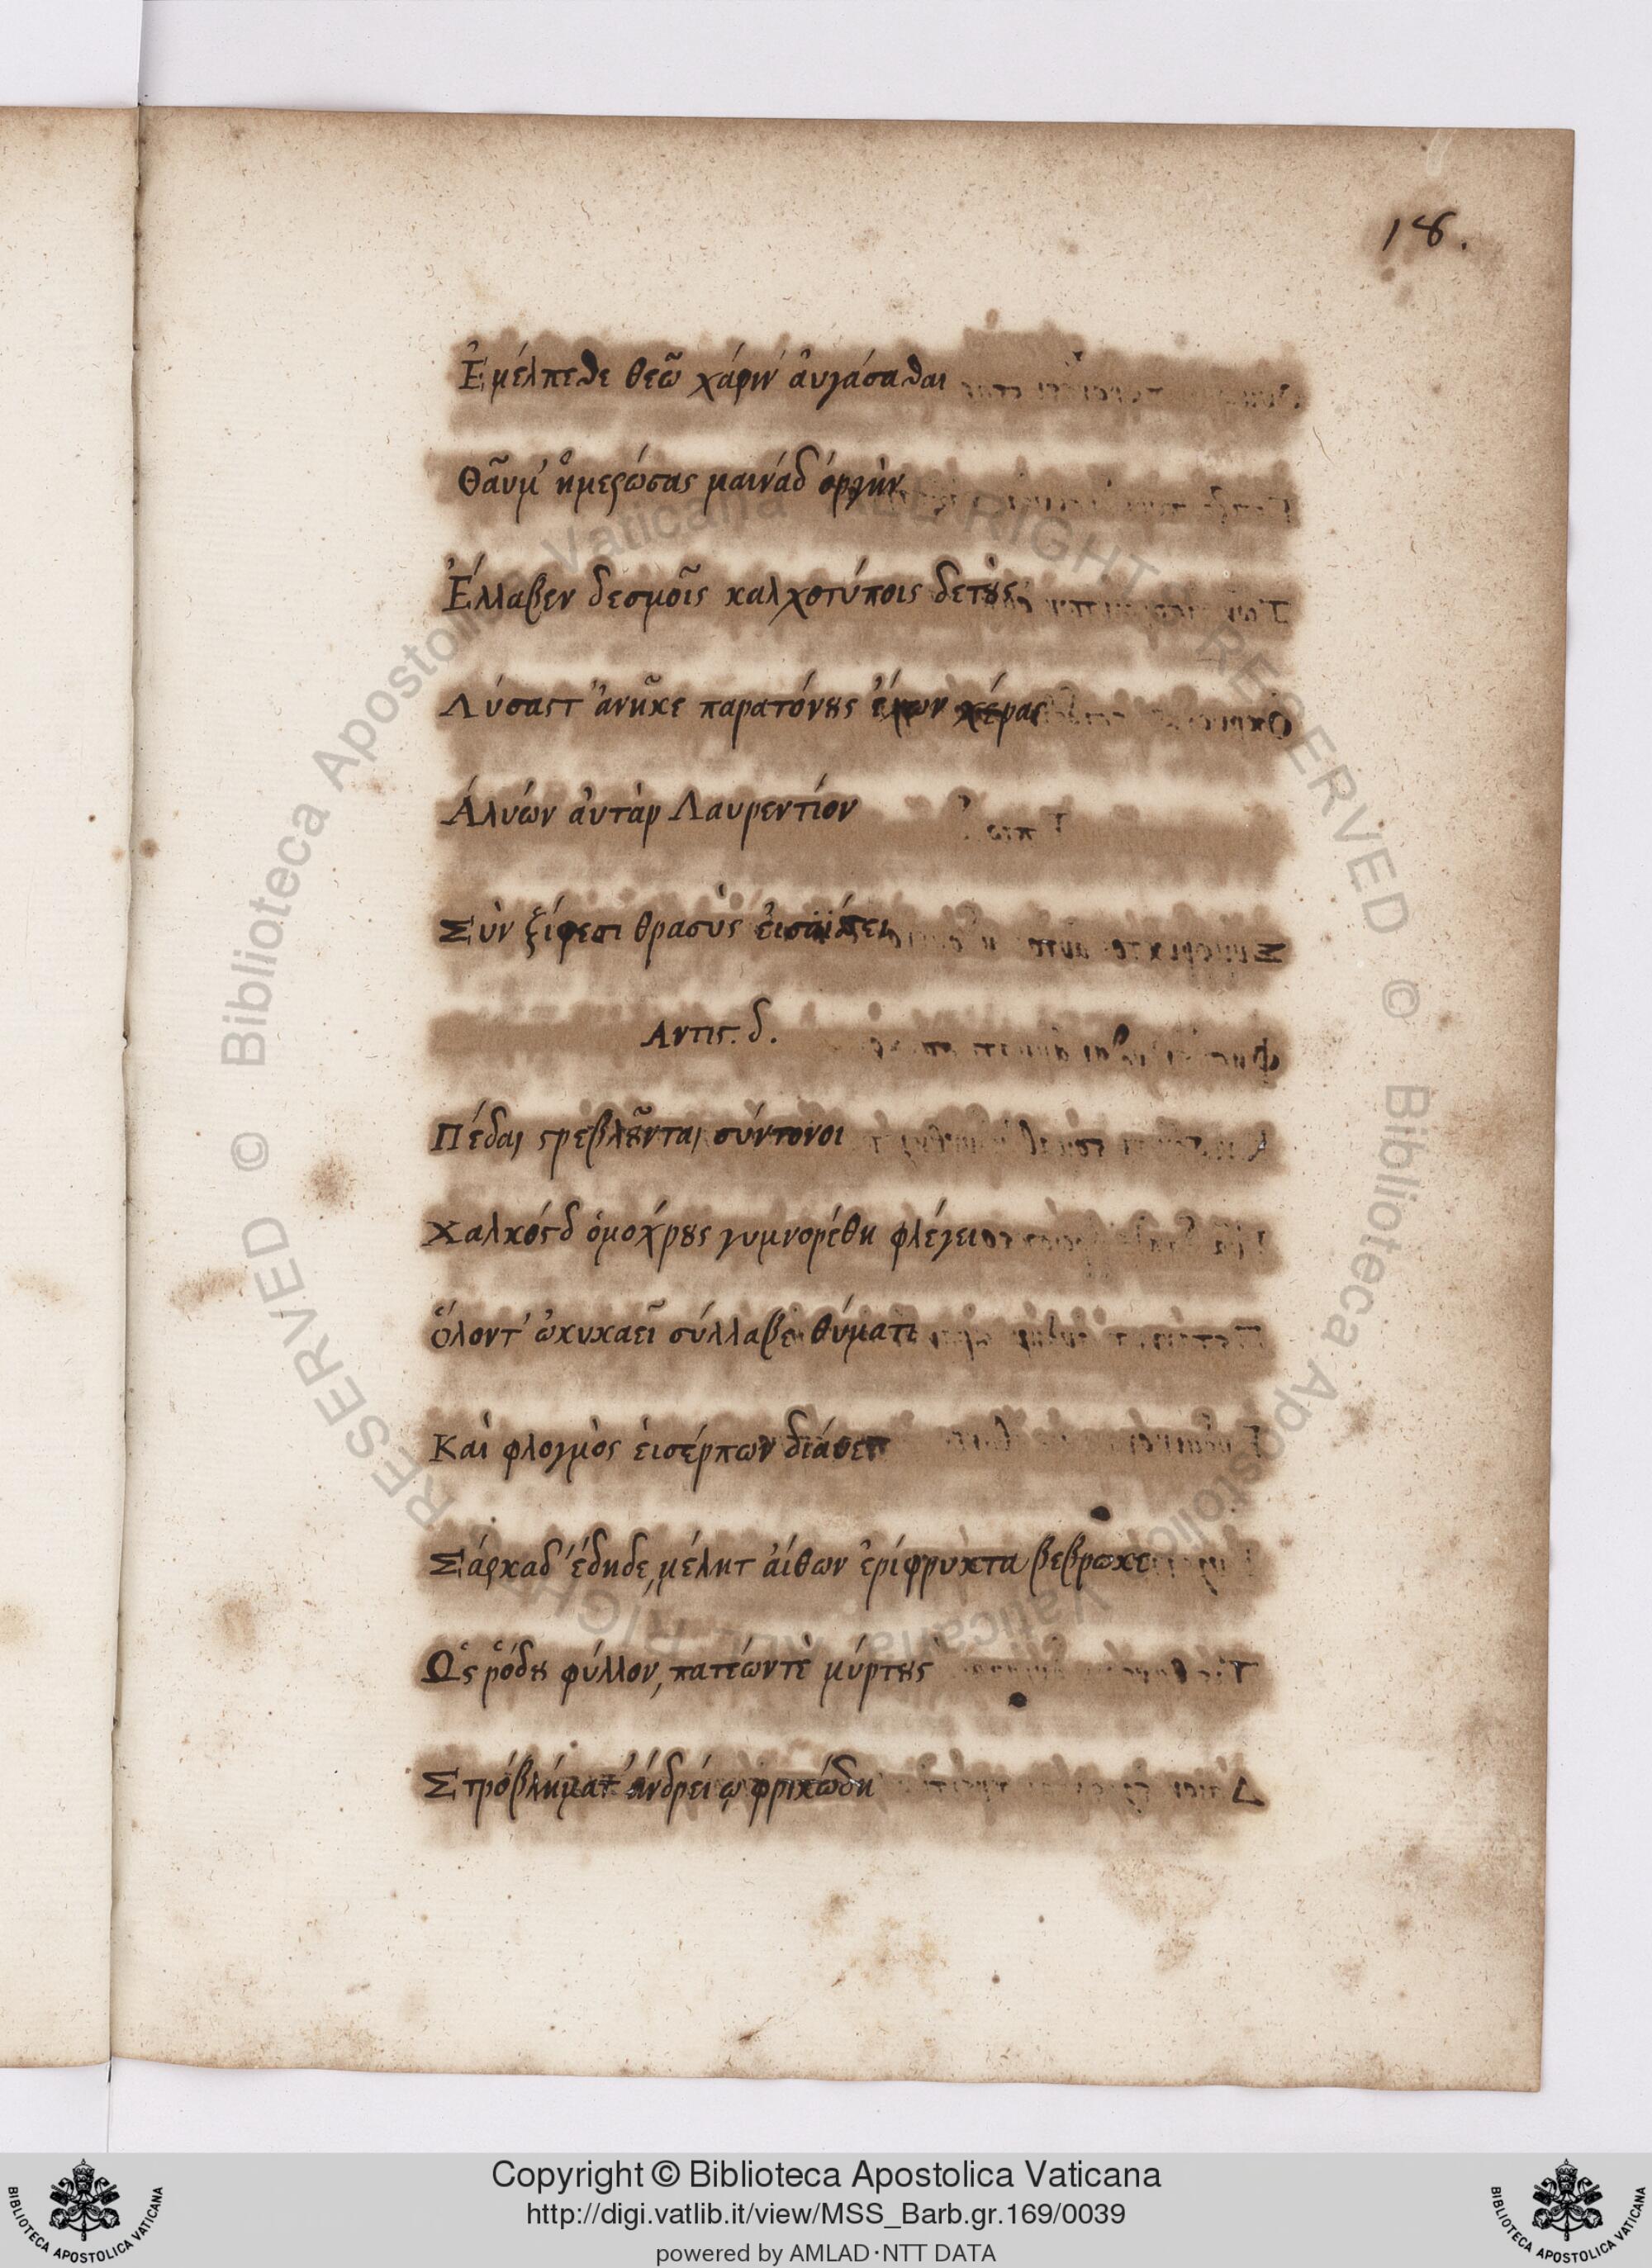 18.
Ἐμέλπεσθε θεῶ χάριν ἀυγάσασθαι
Θᾶυμ' ἡμερώσας μαινάδ ὀργὴν
Ἔλλαβεν δεσμοῖς καλχοτύποις δετȣ̀ς
Λύσαςτ' ἀνῆκε παρατόνȣς χέρας
Ἀλυών ἀυτὰρ Λαυρεντίον
Σὺν ξίφεσι θρασὺς
Αντις. δ.
Πέδαι ϛρεβλȣ͂νται σύντονοι
Χαλκός δ ὁμοχρȣς γυμνορέθη φλέγει
Ὅλοντ' ὠκυκαεῖ σύλλαβε θύματι
Καὶ φλογμὸς ἐισέρπων
Σάρκαδ' ἔδηδε, μέλητ ἀίθων ἐρίφρυκτα βέβρωκε
Ὡς ῥόδȣ φύλλον, πατέωντὲ μύρτȣς
Στρόβλήματ' ἀνδρείῳ φρικώδη
Copyright © Biblioteca Apostolica Vaticana
http://digi.vatlib.it/view/MSS_Barb.gr.169/0039
powered by AMLAD·NTT DATA
BIBLIOTECA APOSTOLICA VATICANA
BIBLIOTECA APOSTOLICA VATICANA
© Biblioteca Apostolica Vaticana ALL RIGHTS RESERVED © Biblioteca Apostolica Vaticana ALL RIGHTS RESERVED